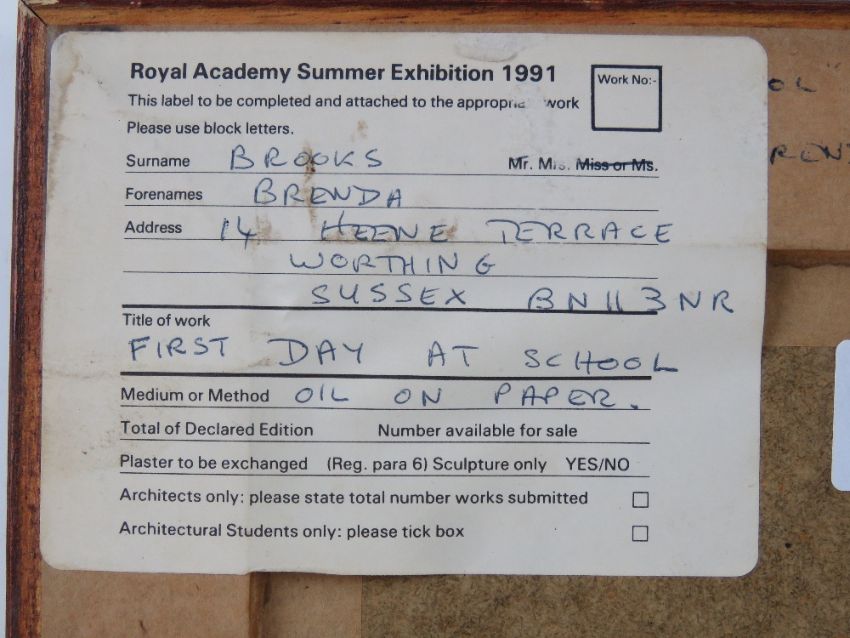 Royal Academy Summer Exhibition 1991
Work No:-
This label to be completed and attached to the appropria work
Please use block letters.
Surname BROOKS Mr. Mrs. Miss or Ms.
Forenames BRENDA
Address 14 HEENE TERRACE
WORTHING
SUSSEX BN11 3NR
Title of work
FIRST DAY AT SCHOOL
Medium or Method OIL ON PAPER.
Total of Declared Edition Number available for sale
Plaster to be exchanged (Reg. para 6) Sculpture only YES/NO
Architects only: please state total number works submitted
Architectural Students only: please tick box
OL"
REN